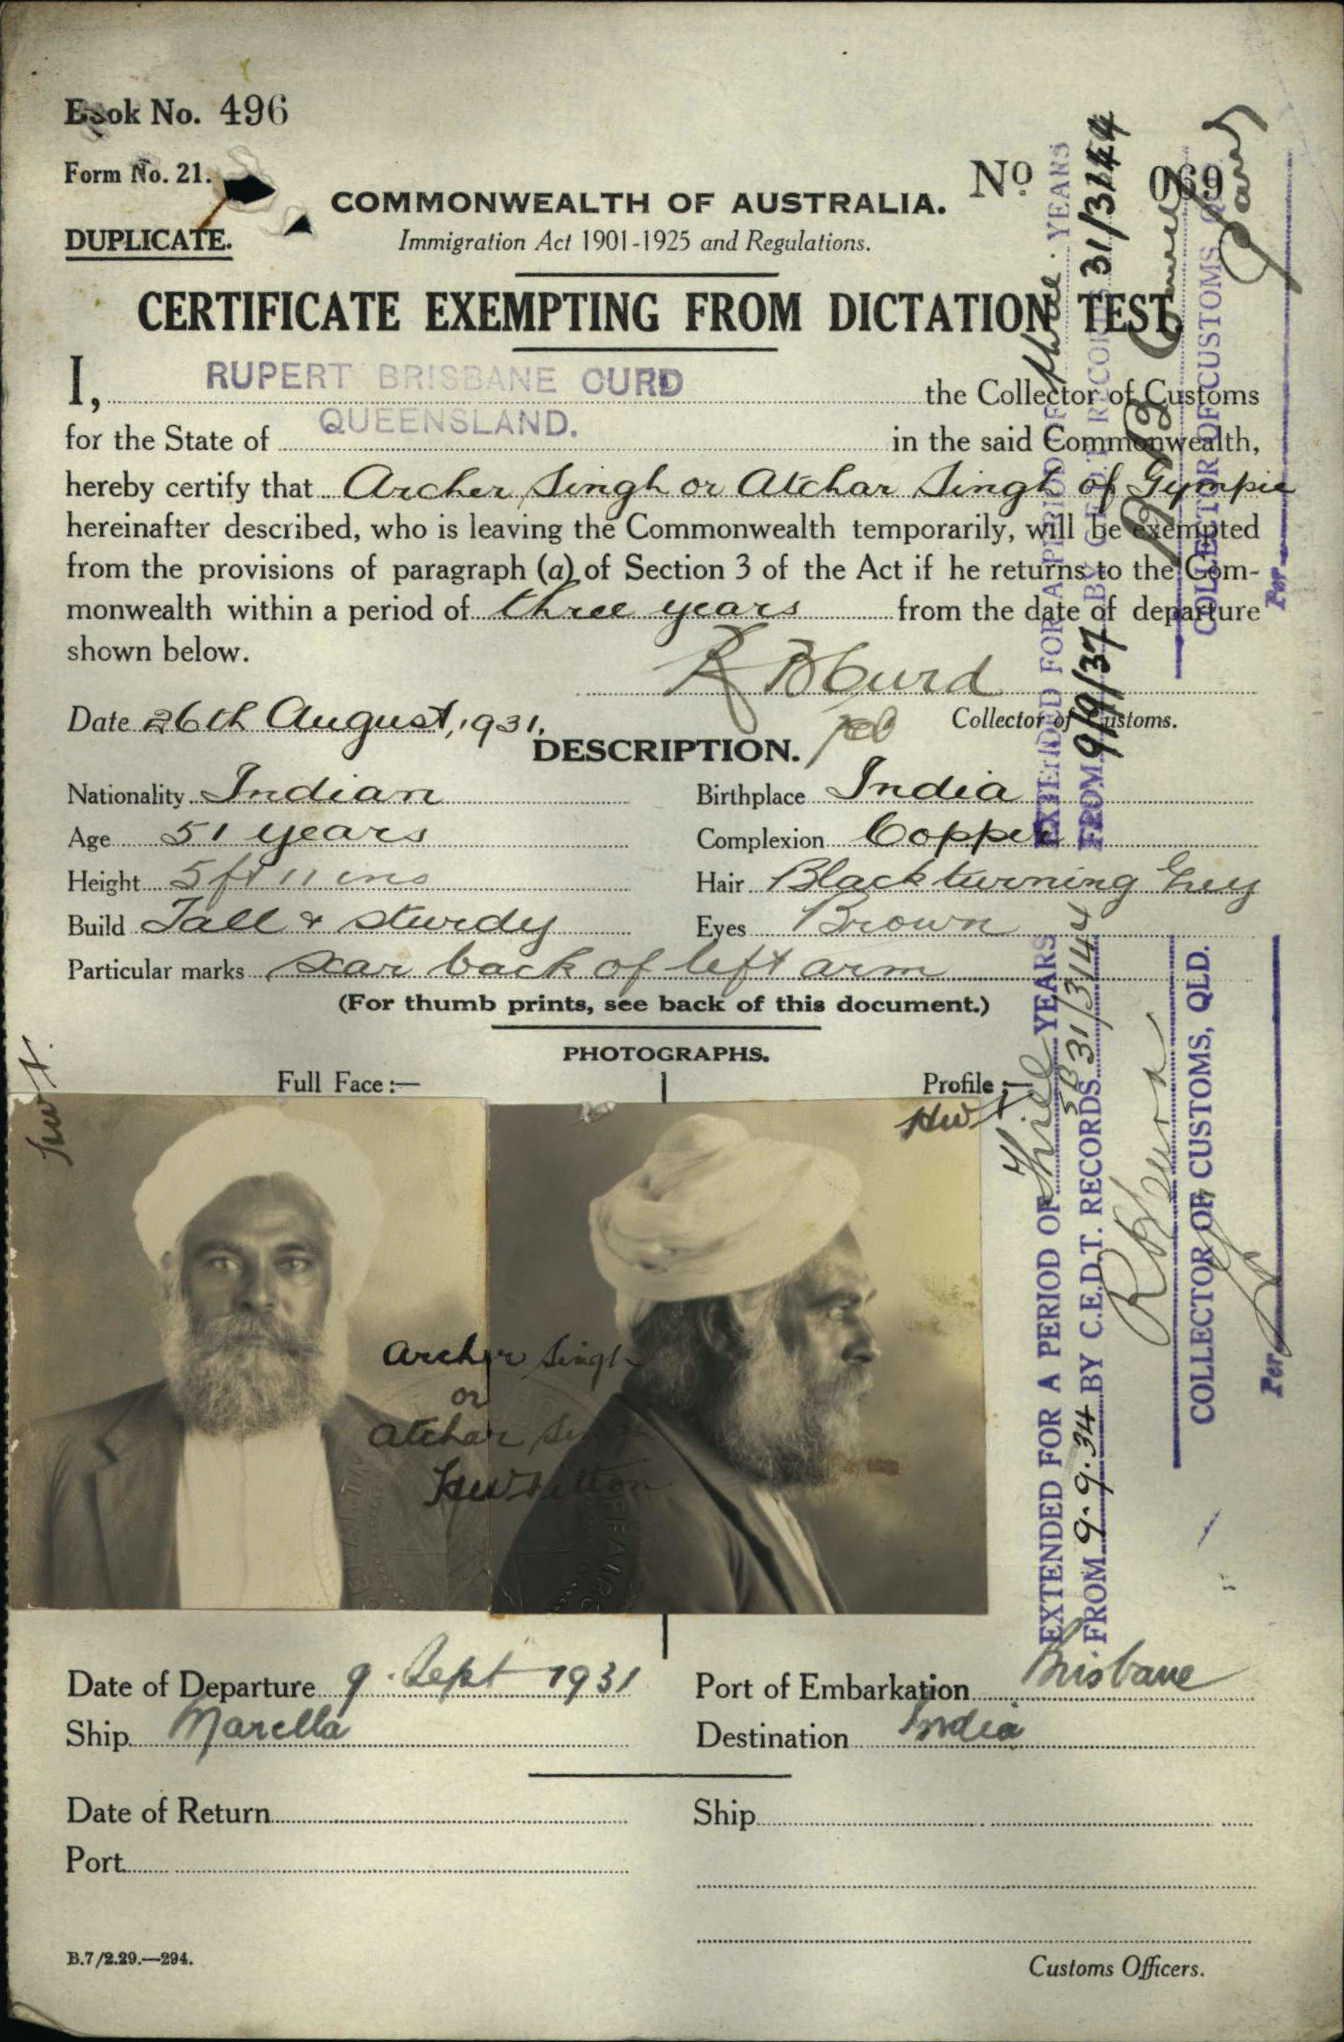 Book No. 496
Form No. 21.
DUPLICATE.
COMMONWEALTH OF AUSTRALIA.
Immigration Act 1901-1925 and Regulations.
No. 069
CERTIFICATE EXEMPTING FROM DICTATION TEST
I, RUPERT BRISBANE CURD the Collector of Customs
for the State of QUEENSLAND. in the said Commonwealth,
hereby certify that Archer Singh or Atchar Singh of Gympie
hereinafter described, who is leaving the Commonwealth temporarily, will be exempted
from the provisions of paragraph (a) of Section 3 of the Act if he returns to the Com-
monwealth within a period of three years from the date of departure
shown below.
R B Curd
Date 26th August, 1931. Collector of Customs.
DESCRIPTION.
Nationality Indian
Birthplace India
Age 51 years
Complexion Copper
Height 5 ft 11 ins
Hair Black turning Grey
Build Tall & sturdy
Eyes Brown
Particular marks Scar back of left arm
(For thumb prints, see back of this document.)
PHOTOGRAPHS.
Full Face :—
Profile :—
Archer Singh
or
Atchar
Date of Departure 9. Sept 1931
Port of Embarkation Brisbane
Ship Marella
Destination India
Date of Return
Ship
Port
B.7/2.29.—294.
Customs Officers.
EXTENDED FOR A PERIOD OF three YEARS
FROM 9/9/37 BY C.E.D.T. RECORDS 31/3144
COLLECTOR OF CUSTOMS, QLD.
Per
EXTENDED FOR A PERIOD OF Three YEARS
FROM 9.9.34 BY C.E.D.T. RECORDS 31/3144
R B Curd
COLLECTOR OF CUSTOMS, QLD.
Per